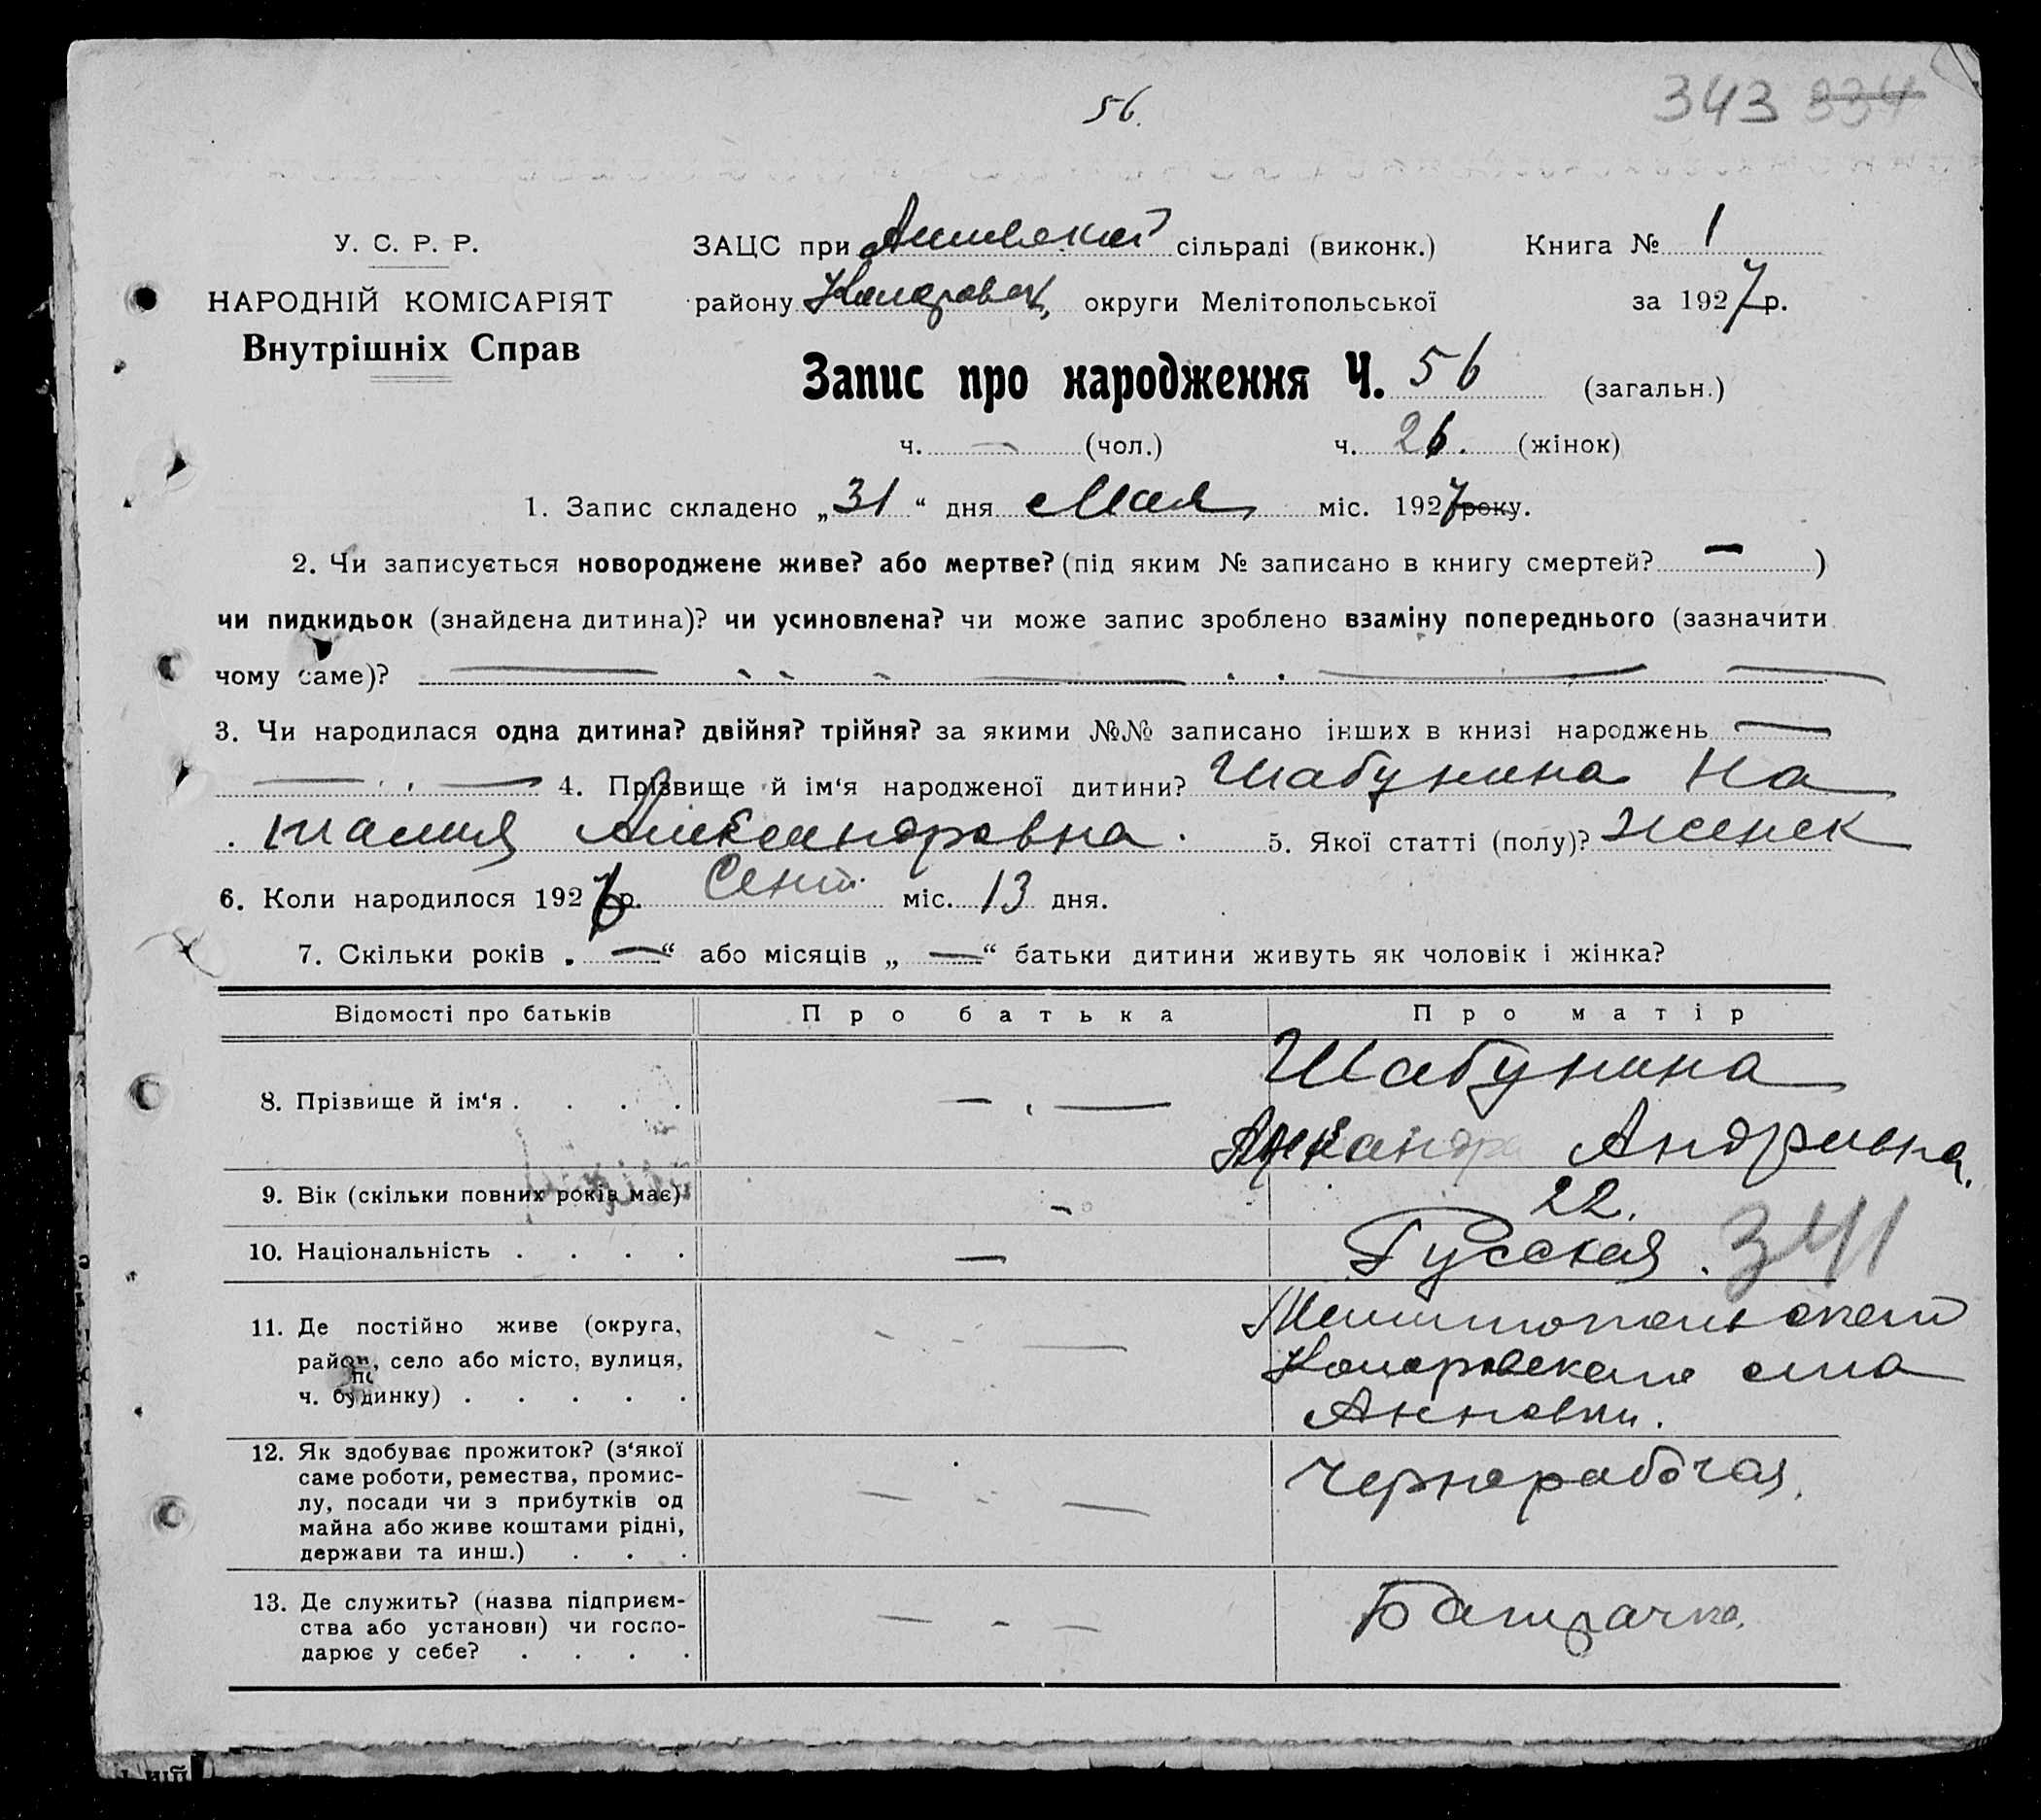 56.
343 334
У. С. Р. Р.
НАРОДНІЙ КОМІСАРІЯТ
Внутрішніх Справ
ЗАЦС при сільраді (виконк.) Книга № 1
району округи Мелітопольської за 1927 р.
Запис про народження Ч. 56 (загальн.)
ч. — (чол.) ч. 26. (жінок)
1. Запис складено „31“ дня Мая міс. 1927 року.
2. Чи записується новороджене живе? або мертве? (під яким № записано в книгу смертей? — )
чи пидкидьок (знайдена дитина)? чи усиновлена? чи може запис зроблено взаміну попереднього (зазначити
чому саме)?
3. Чи народилася одна дитина? двійня? трійня? за якими №№ записано інших в книзі народжень —
— 4. Прізвище й ім‘я народженої дитини? Шабунина На
талия Александровна. 5. Якої статті (полу)? женск
6. Коли народилося 1926 р. Сент. міс. 13 дня.
7. Скільки років „—“ або місяців „—“ батьки дитини живуть як чоловік і жінка?
Відомості про батьків Про батька Про матір
8. Прізвище й ім‘я . . . . — Шабунина
Андривна.
9. Вік (скільки повних років має) — 22.
10. Національність . . . . — Русская. 341
11. Де постійно живе (округа,
район, село або місто, вулиця,
ч. будинку) . . . . .
Мелитопольского
села
Анновки.
12. Як здобуває прожиток? (з‘якої
саме роботи, ремества, промис-
лу, посади чи з прибутків од
майна або живе коштами рідні,
держави та инш.) . . .
Чернорабочая.
13. Де служить? (назва підприєм-
ства або установи) чи госпо-
дарює у себе? . . . .
Батрачка.